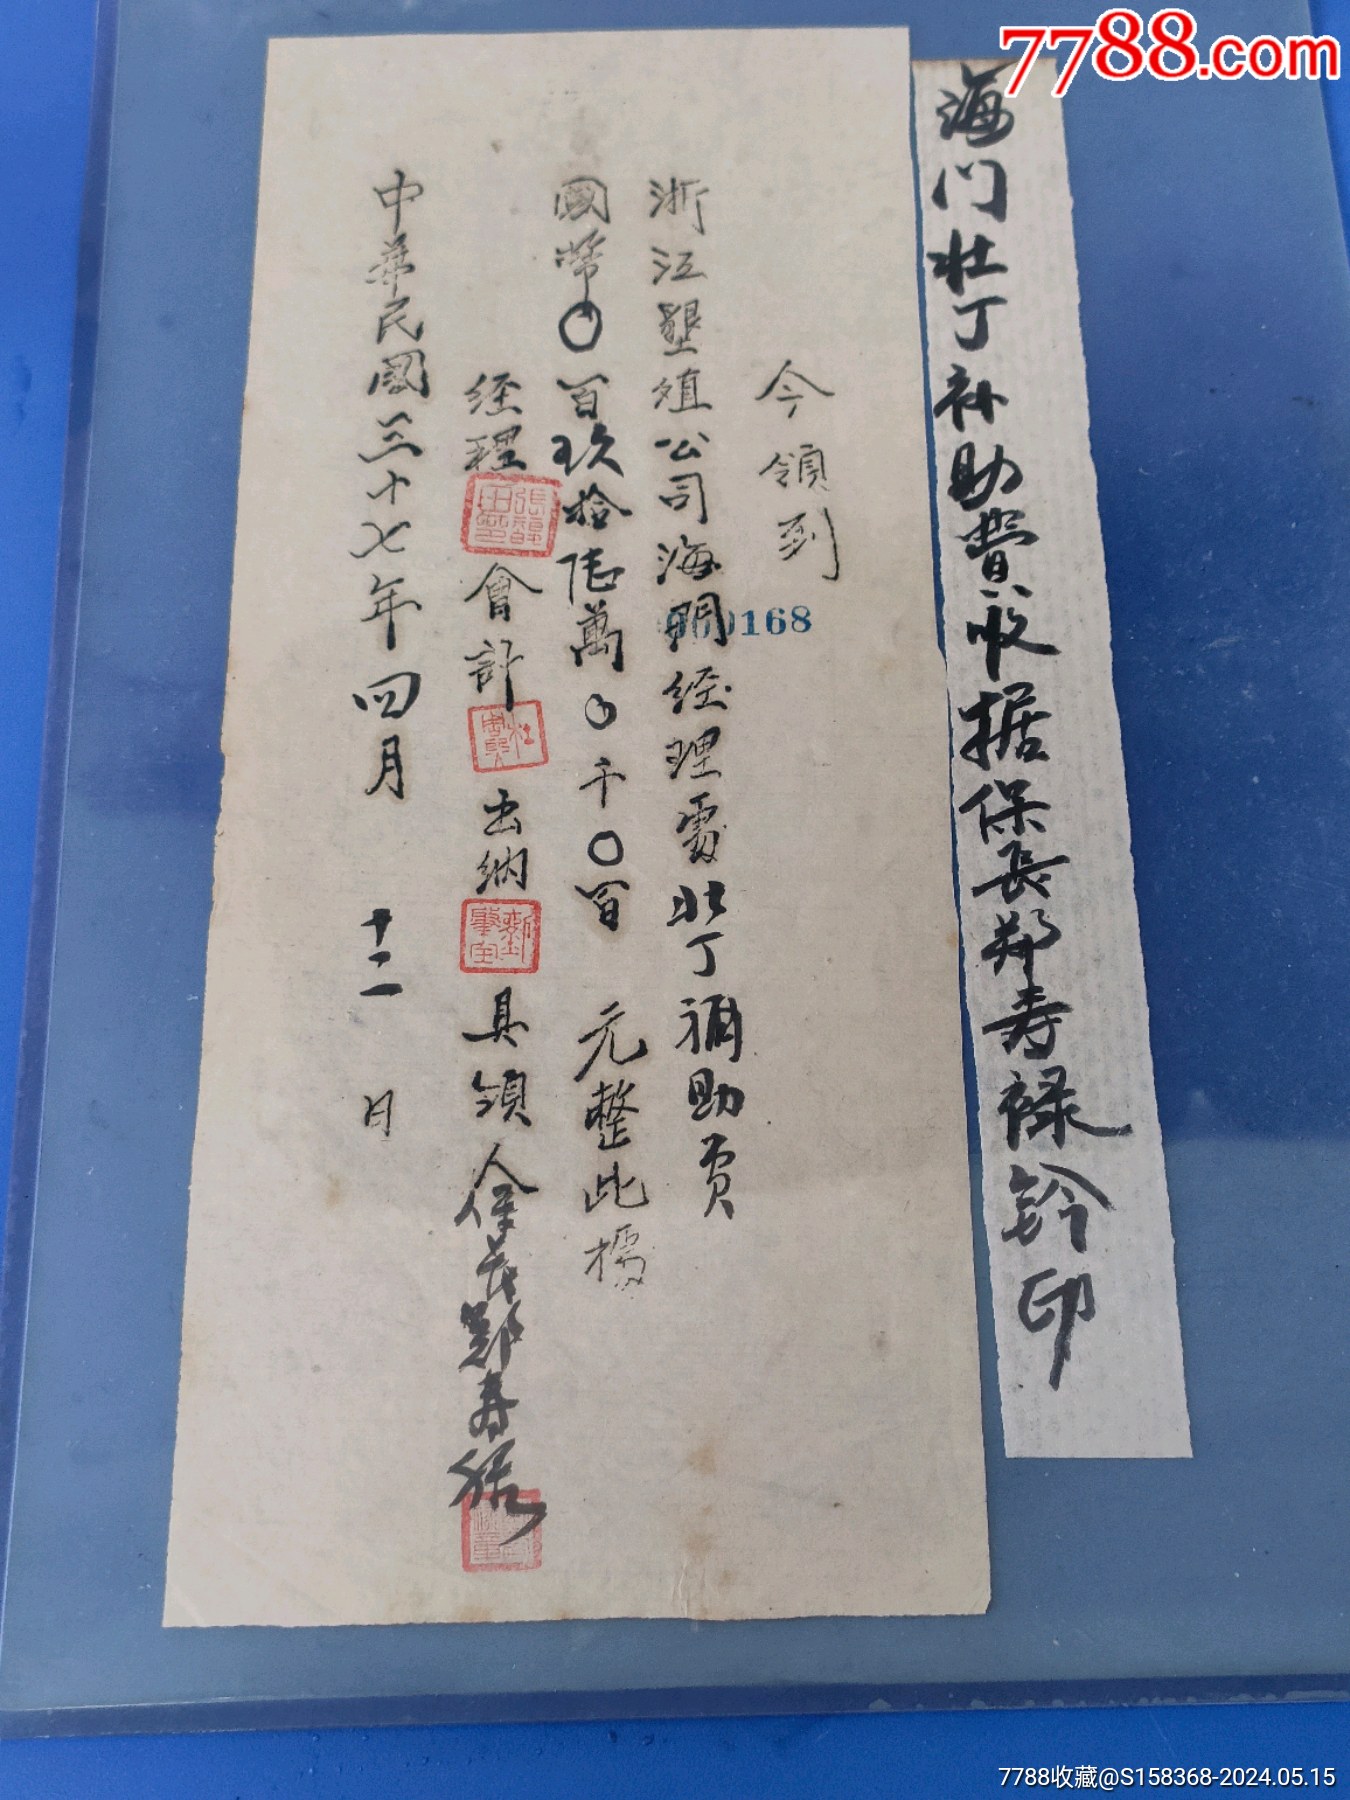 7788.com
海门壮丁补助費收据保長郑寿禄鈐印
今領到
浙江墾殖公司海門經理處壯丁補助費
000168
國幣〇百玖拾陆萬〇千〇百元整此據
經理 會計 出納 具領人保長鄭寿禄
中華民國三十七年四月十二日
7788收藏@S158368-2024.05.15